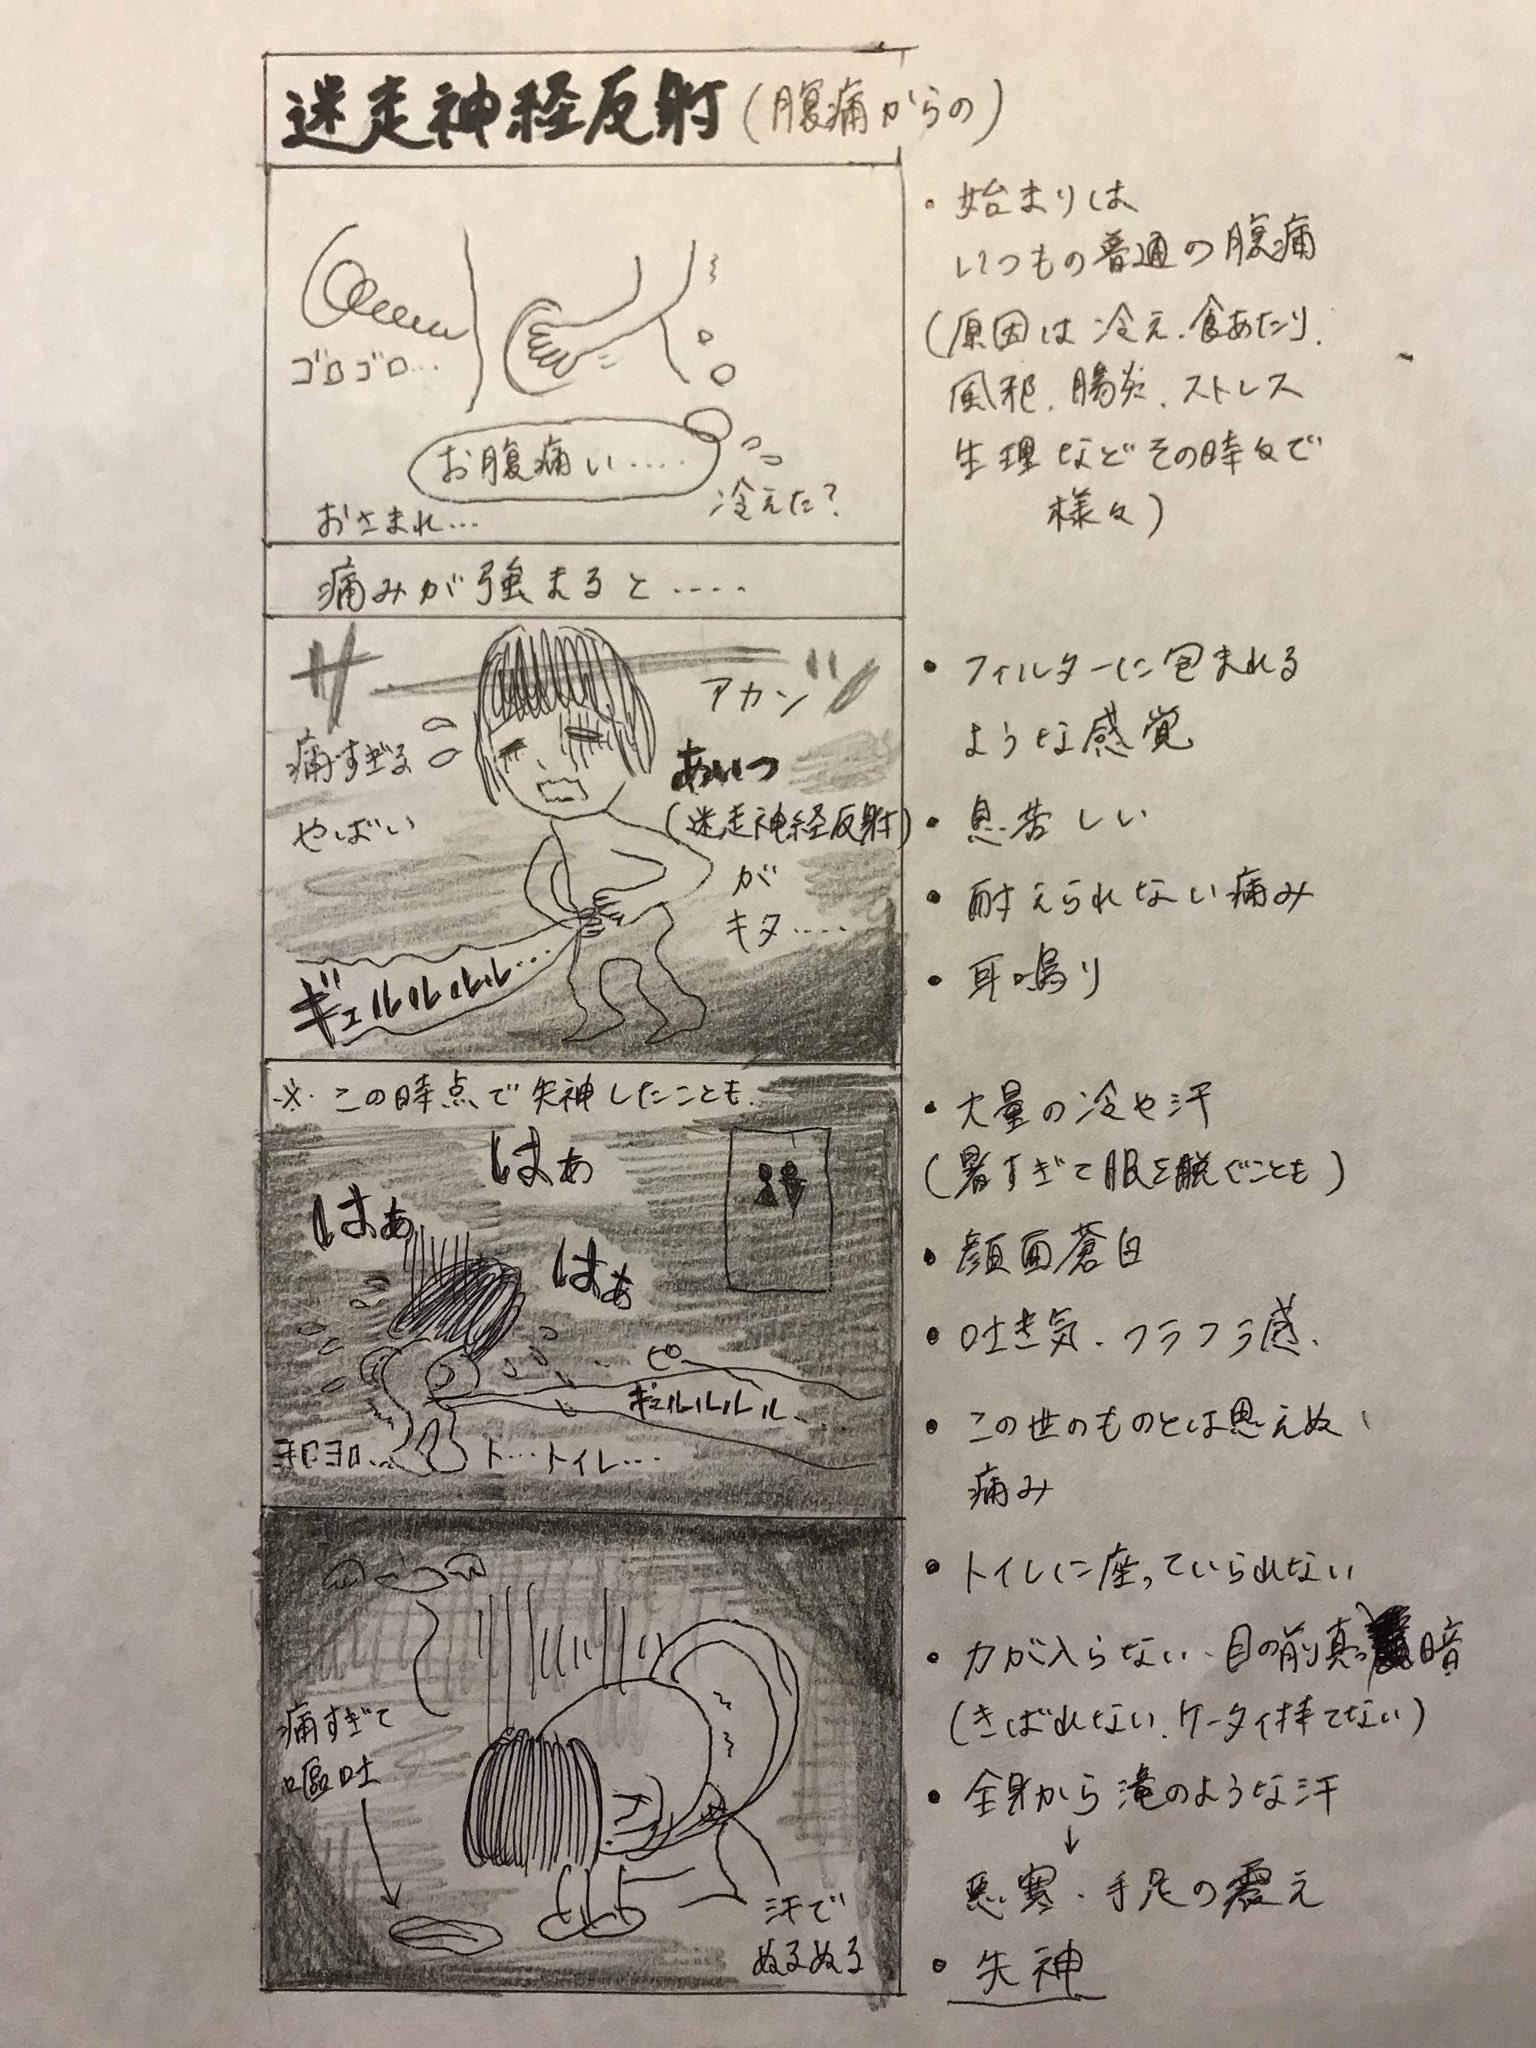 迷走神経反射(腹痛からの)
ゴロゴロ…
お腹痛い….
冷えた?
おさまれ…
・始まりは
いつもの普通の腹痛
(原因は冷え、食あたり、
風邪、腸炎、ストレス
生理などその時々で
様々)
痛みが強まると…..
サーッ
アカン
痛すぎる
やばい
あいつ
(迷走神経反射)
が
キタ….
ギュルルルル…
・フィルターに包まれる
ような感覚
・息苦しい
・耐えられない痛み
・耳鳴り
※この時点で失神したことも
はぁ
はぁ
はぁ
ピー
ギュルルルル…
ヨロヨロ…
ト…トイレ…
・大量の冷や汗
(暑すぎて服を脱ぐことも)
・顔面蒼白
・吐き気、フラフラ感、
・この世のものとは思えぬ
痛み
痛すぎて
嘔吐
汗で
ぬるぬる
・トイレに座っていられない
・力が入らない、目の前真っ暗
(きばれない、ケータイ持てない)
・全身から滝のような汗
↓
悪寒、手足の震え
・失神